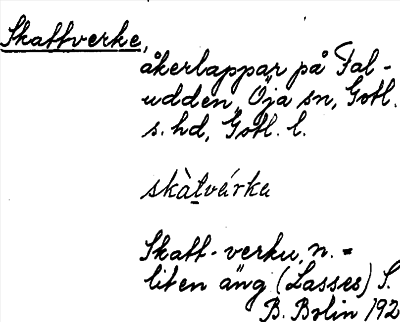 Skattverke,
åkerlappar på Fal-
udden, Öja sn, Gotl.
s. hd, Gotl. l.
skàtvárku
Skatt-verku, n. =
liten äng (Lasses) S.
B. Bolin 192